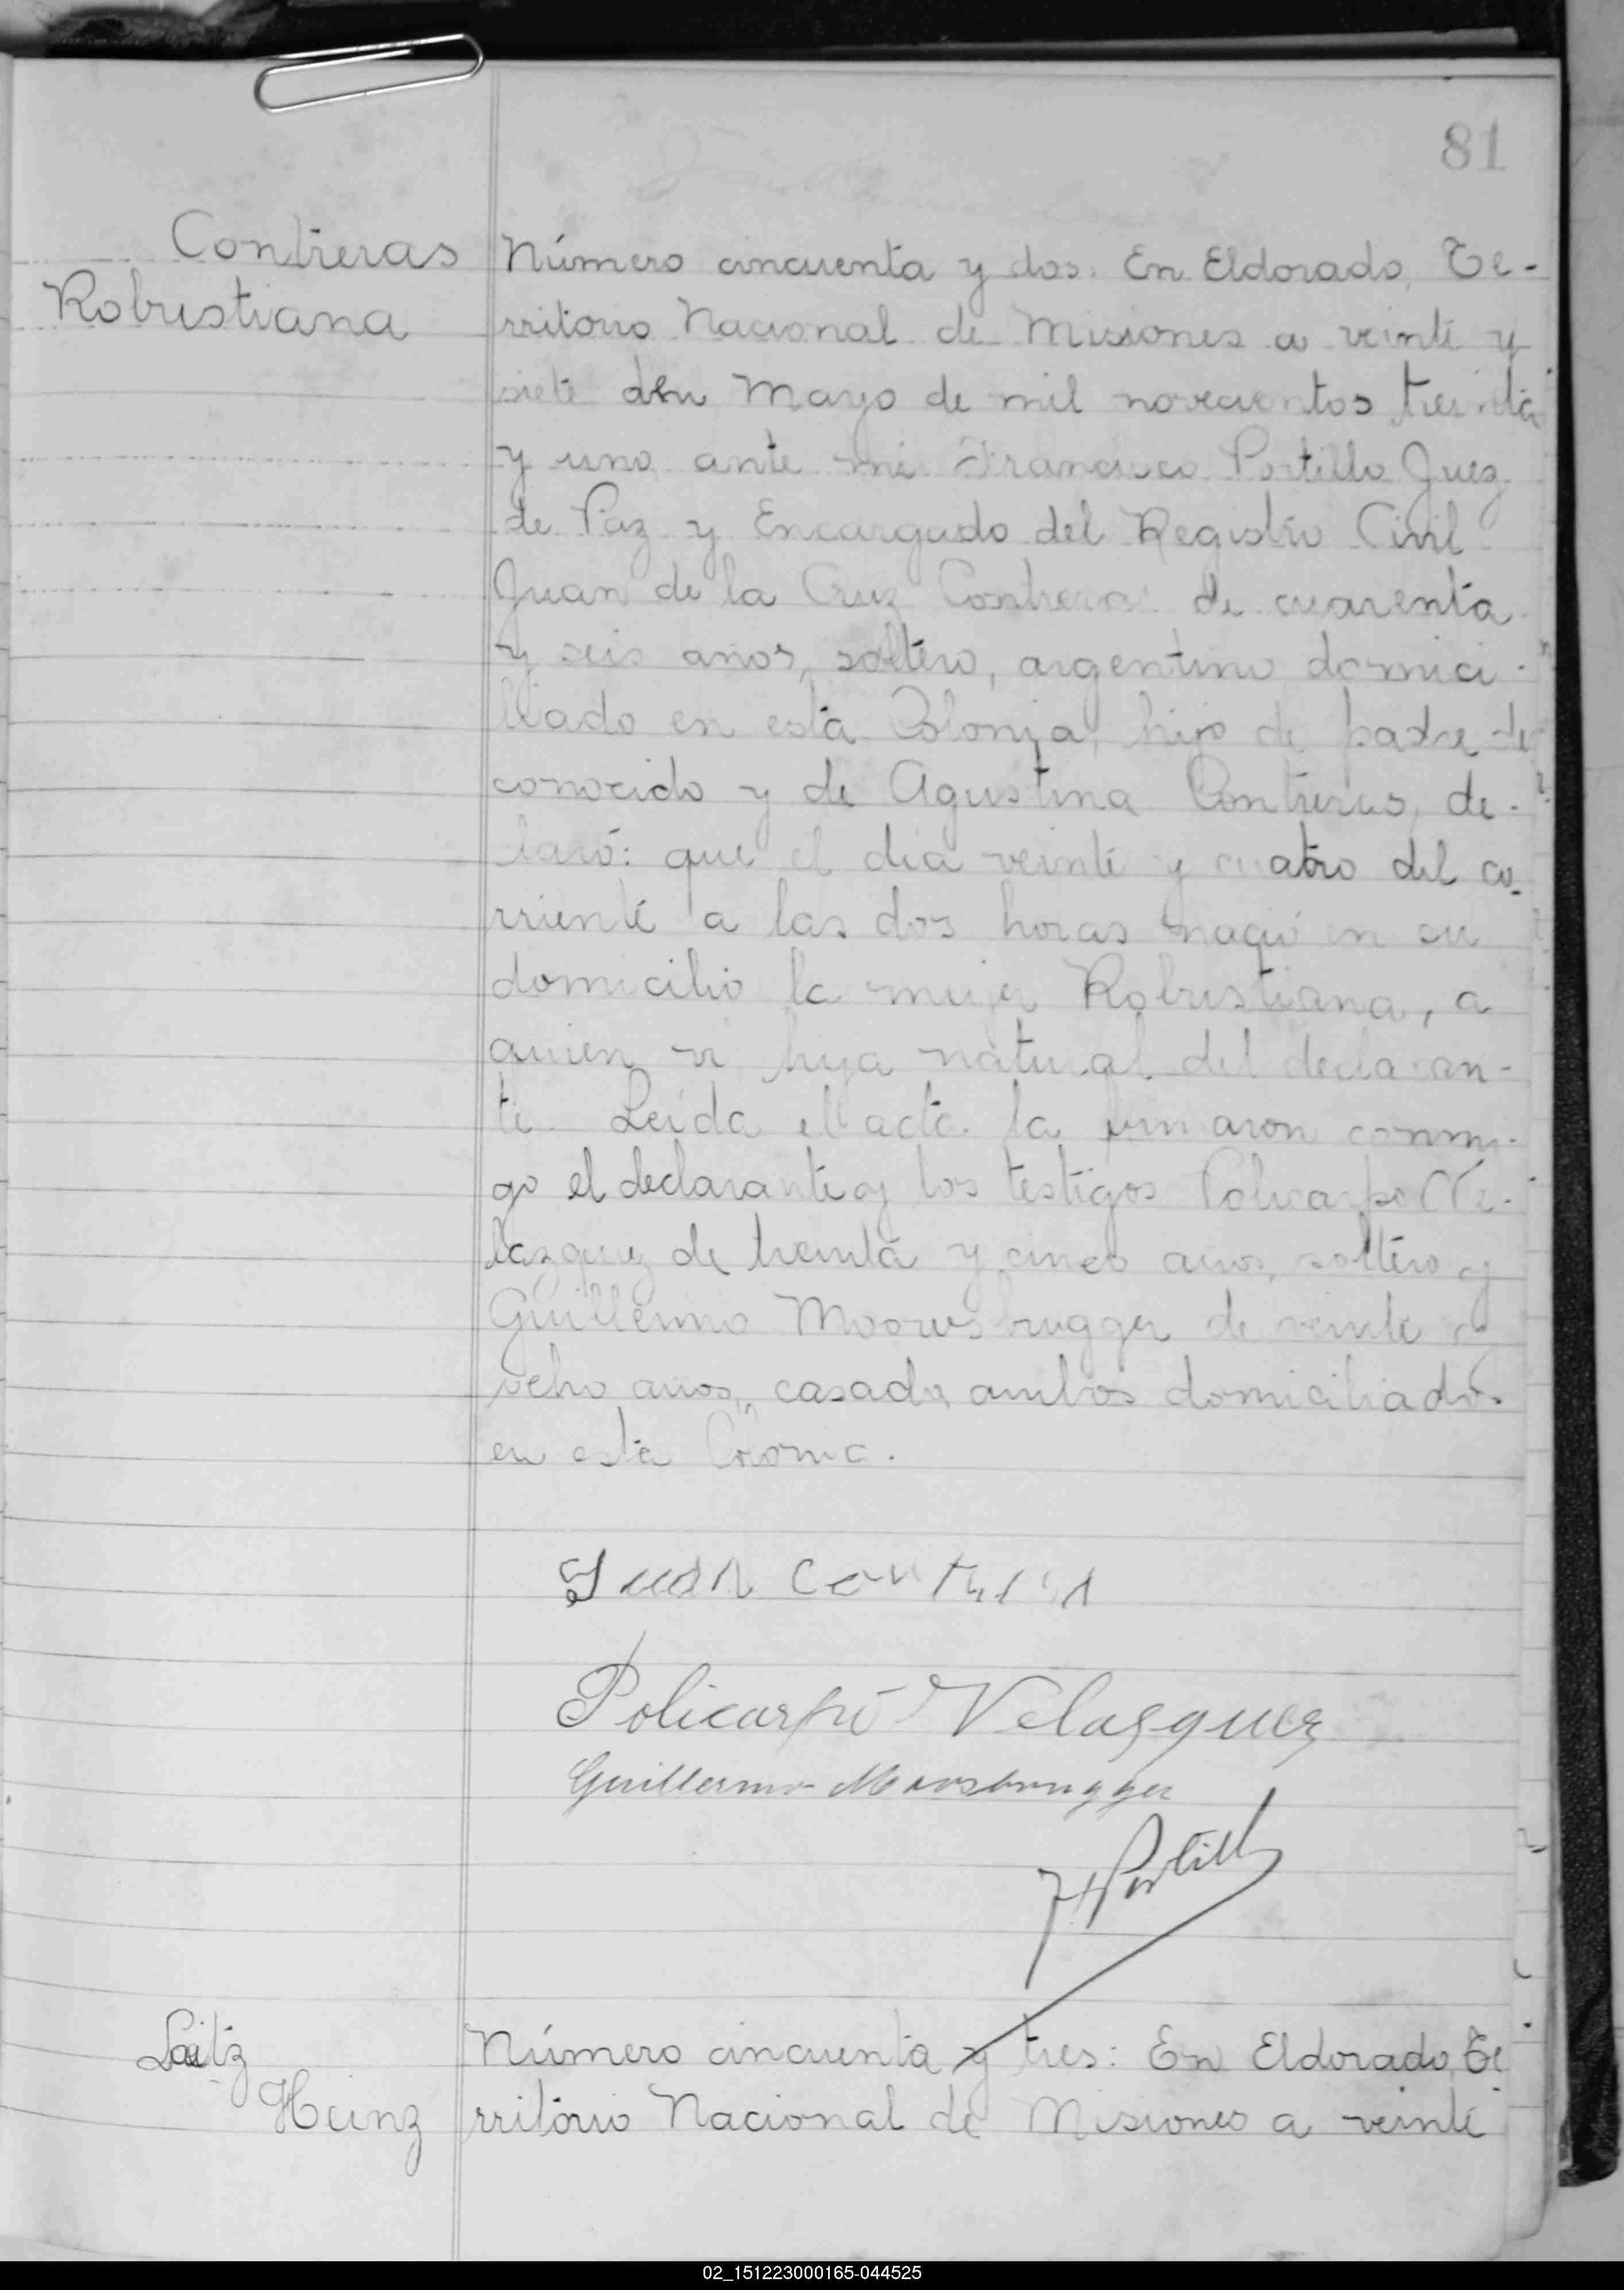 81
Contreras
Robustiana
Número cincuenta y dos: En Eldorado, Te-
rritorio Nacional de Misiones a veinte y
siete de Mayo de mil novecientos treinta
y uno ante mi Francisco Portillo Juez
de Paz y Encargado del Registro Civil
Juan de la Cruz Contreras de cuarenta
y seis años, soltero, argentino domici-
liado en esta Colonia, hijo de padre des
conocido y de Agustina Contreras, de-
claró: que el dia veinte y cuatro del co-
rriente a las dos horas nació en su
domicilio la mujer Robustiana, a
quien vi hija natural del declaran-
te. Leida el acta la firmaron conmi-
go el declarante y los testigos Policarpo Ve-
lazquez de treinta y cinco años, soltero y
Guillermo Moosbrugger de veinte y
ocho años, casado, ambos domiciliados
en esta Colonia.
Juan Contrera
Policarpo Velasquez
Guillermo Moosbrugger
F Portillo
Laitz
Heinz
Número cincuenta y tres: En Eldorado, Te
rritorio Nacional de Misiones a veinte
02_151223000165-044525